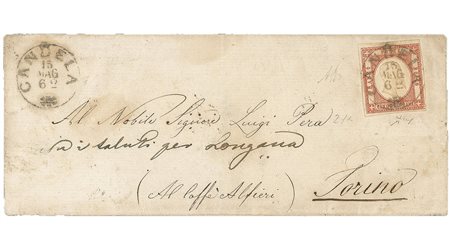 CANDELA
15
MAG
62
CANDELA
15
MAG
62
Al Nobile Signore Luigi Pera
i saluti per Longana
(Al Caffè Alfieri)
Torino